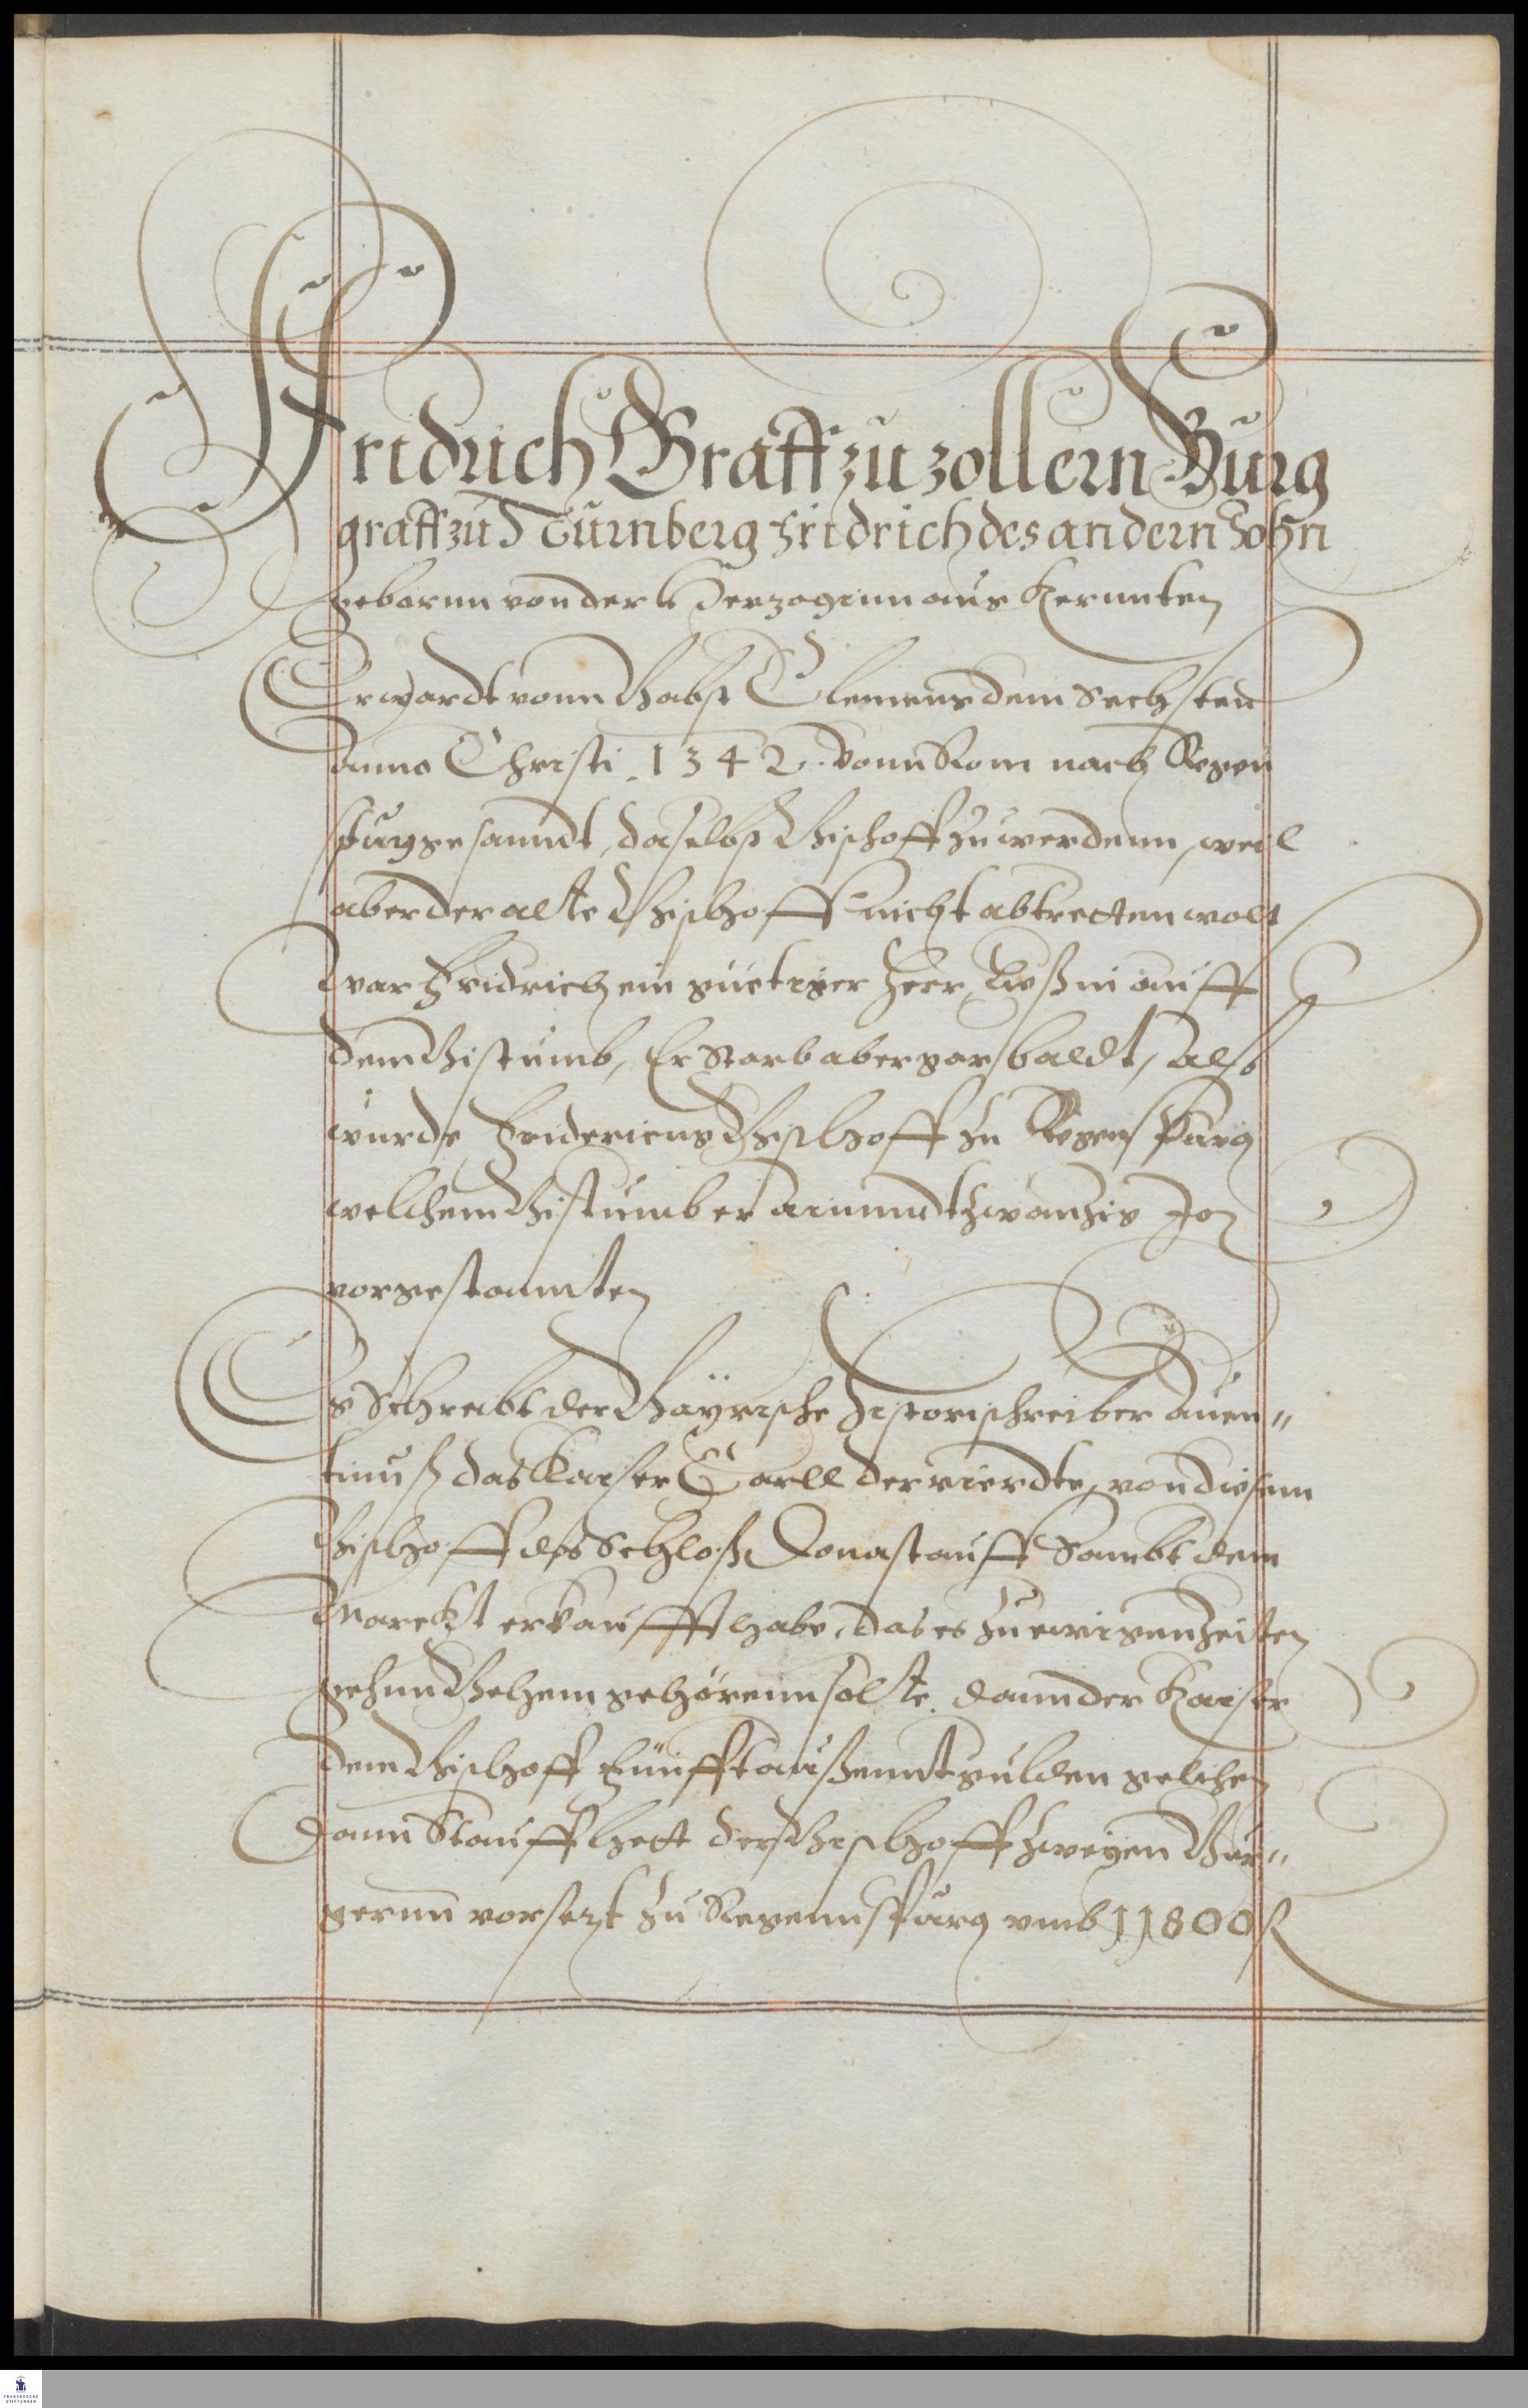 Fridrich Graff zu zollern Burg
graff zu Nürnberg Fridrich des andern Sohn
gebornn von der Herzoginn aus Kernnten
Er wardt vonn Babst Clemens dem Sechsten
Anno Christi 1342. Vonn Rom nach Regen
spurg gesanndt, daselbst Bischoff zu werdenn, weil
aber der alte Bischoff nicht abtretten wolt
War Fridrich ein guetiger Herr, Ließ in auff
dem Bistumb, Er Starb aber gar baldt, Also
wurde Fridericus Bischoff zu Regenspurg
welchem Bistumb er ainundtzwanzig Jar
vorgestanndten
Es Schreibt der Bayrische Historischreiber Auen"
tinuß das Kaiser Carll der vierdte, von diesem
Bischoff das Schloß Donastauff Sambt dem
Marckt erkaufft habe, das es zu ewigen Zeiten
gehnn Behem gehörenn solte. Dann der Kaiser
dem Bischoff Fünfftaußenntgulden gelichen
Dann Stauff hett der Bischoff zweyen Bur"
gernn vorsezt zu Regennspurg vmb 11800 fl
FRANCKESCHE
STIFTUNGEN